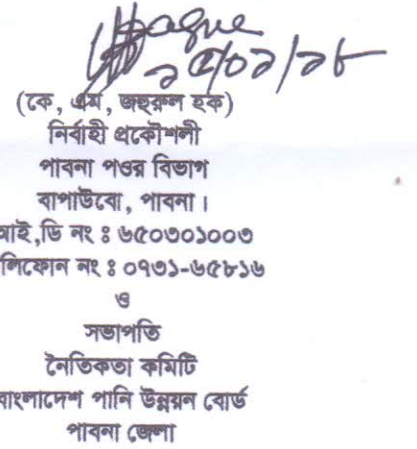 ২৫/০১/১৮
(কে, এম, জহুরুল হক)
নির্বাহী প্রকৌশলী
পাবনা পওর বিভাগ
বাপাউবো, পাবনা।
আই,ডি নং ঃ ৬৫০৩০১০০৩
লিফোন নং ঃ ০৭৩১-৬৫৮১৬
ও
সভাপতি
নৈতিকতা কমিটি
বাংলাদেশ পানি উন্নয়ন বোর্ড
পাবনা জেলা